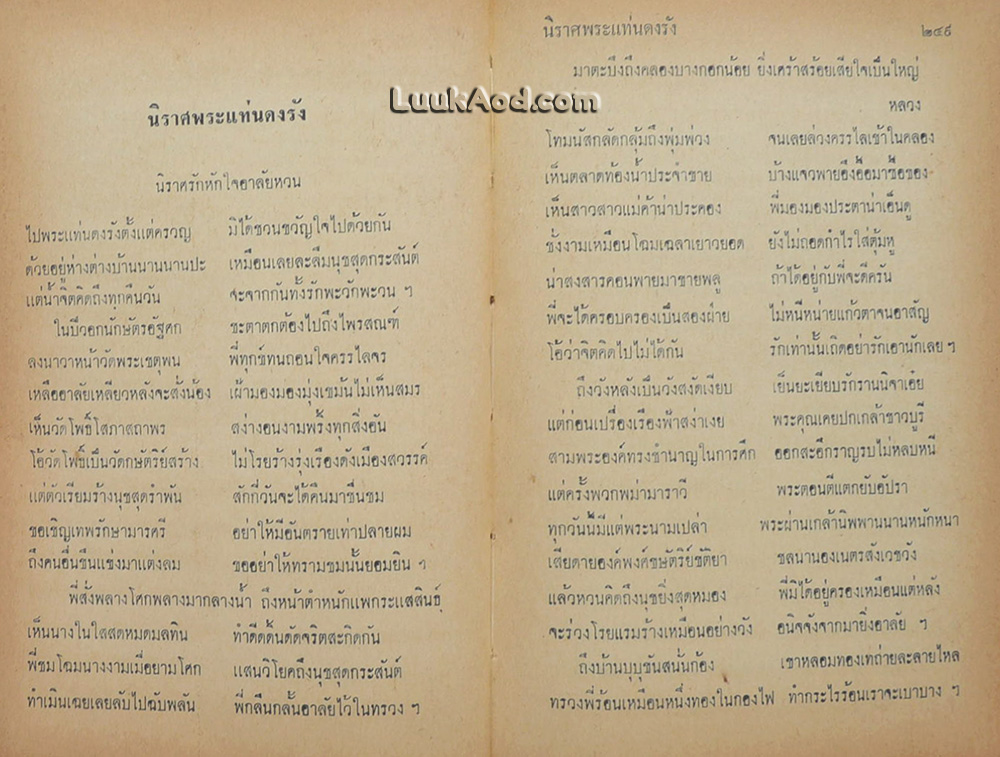 นิราศพระแท่นดงรัง
นิราศรักหักใจอาลัยหวน
ไปพระแท่นดงรังตั้งแต่ครวญ มิได้ชวนขวัญใจไปด้วยกัน
ด้วยอยู่ห่างต่างบ้านนานนานปะ เหมือนเลยละลืมนุชสุดกระสันต์
แต่น้ำจิตคิดถึงทุกคืนวัน จะจากกันทั้งรักพะวักพะวน ฯ
ในปีวอกนักษัตรอัฐศก ชะตาตกต้องไปถึงไพรสณฑ์
ลงนาวาหน้าวัดพระเชตุพน พี่ทุกข์ทนถอนใจครรไลจร
เหลืออาลัยเหลียวหลังจะสั่งน้อง เฝ้ามองมองมุ่งเขม้นไม่เห็นสมร
เห็นวัดโพธิ์โสภาสถาพร สง่างอนงามพริ้งทุกสิ่งอัน
โอ้วัดโพธิ์เป็นวัดกษัตริย์สร้าง ไม่โรยร้างรุ่งเรืองดังเมืองสวรรค์
แต่ตัวเรียมร้างนุชสุดรำพัน สักกี่วันจะได้คืนมาชื่นชม
ขอเชิญเทพรักษามารศรี อย่าให้มีอันตรายเท่าปลายผม
ถึงคนอื่นขืนแข่งมาแต่งลม ขออย่าให้ทรามชมนั้นยอมยิน ฯ
พี่สั่งพลางโศกพลางมากลางน้ำ ถึงหน้าตำหนักแพกระแสสินธุ์
เห็นนางในใสสดหมดมลทิน ทำดีดดิ้นดัดจริตสะกิดกัน
พี่ชมโฉมนางงามเมื่อยามโศก แสนวิโยคถึงนุชสุดกระสันต์
ทำเมินเฉยเลยลับไปฉับพลัน พี่กลืนกลั้นอาลัยไว้ในทรวง ฯ
นิราศพระแท่นดงรัง ๒๔๙
มาตะบึงถึงคลองบางกอกน้อย ยิ่งเศร้าสร้อยเสียใจเป็นใหญ่
หลวง
โทมนัสกลัดกลุ้มถึงพุ่มพ่วง จนเลยล่วงครรไลเข้าในคลอง
เห็นตลาดท้องน้ำประจำขาย บ้างแจวพายอึงอื้อมาซื้อของ
เห็นสาวสาวแม่ค้าน่าประคอง พี่มองมองประตาน่าเอ็นดู
ช่างงามเหมือนโฉมเฉลาเยาวยอด ยังไม่ถอดกำไรใส่ตุ้มหู
น่าสงสารคอนพายมาขายพลู ถ้าได้อยู่กับพี่จะดีครัน
พี่จะได้ครอบครองเป็นสองฝ่าย ไม่หนีหน่ายแก้วตาจนอาสัญ
โอ้ว่าจิตคิดไปไม่ได้กัน รักเท่านั้นเถิดอย่ารักเอานักเลย ฯ
ถึงวังหลังเป็นวังสงัดเงียบ เย็นยะเยียบรักรานนิจาเอ๋ย
แต่ก่อนเปรื่องเรืองฟ้าสง่าเงย พระคุณเคยปกเกล้าชาวบูรี
สามพระองค์ทรงชำนาญในการศึก ออกสะอึกราญรบไม่หลบหนี
แต่ครั้งพวกพม่ามาราวี พระตอนตีแตกยับอัปรา
ทุกวันนี้มีแต่พระนามเปล่า พระผ่านเกล้านิพพานนานหนักหนา
เสียดายองค์พงศ์ขษัตริย์ขัติยา ชลนานองเนตรสังเวชวัง
แล้วหวนคิดถึงนุชยิ่งสุดหมอง พี่มิได้อยู่ครองเหมือนแต่หลัง
จะร่วงโรยแรมร้างเหมือนอย่างวัง อนิจจังจากมายิ่งอาลัย ฯ
ถึงบ้านบุบุขันสนั่นก้อง เขาหลอมทองเทถ่ายละลายไหล
ทรวงพี่ร้อนเหมือนหนึ่งทองในกองไฟ ทำกระไรร้อนเราจะเบาบาง ฯ
LuukAod.com